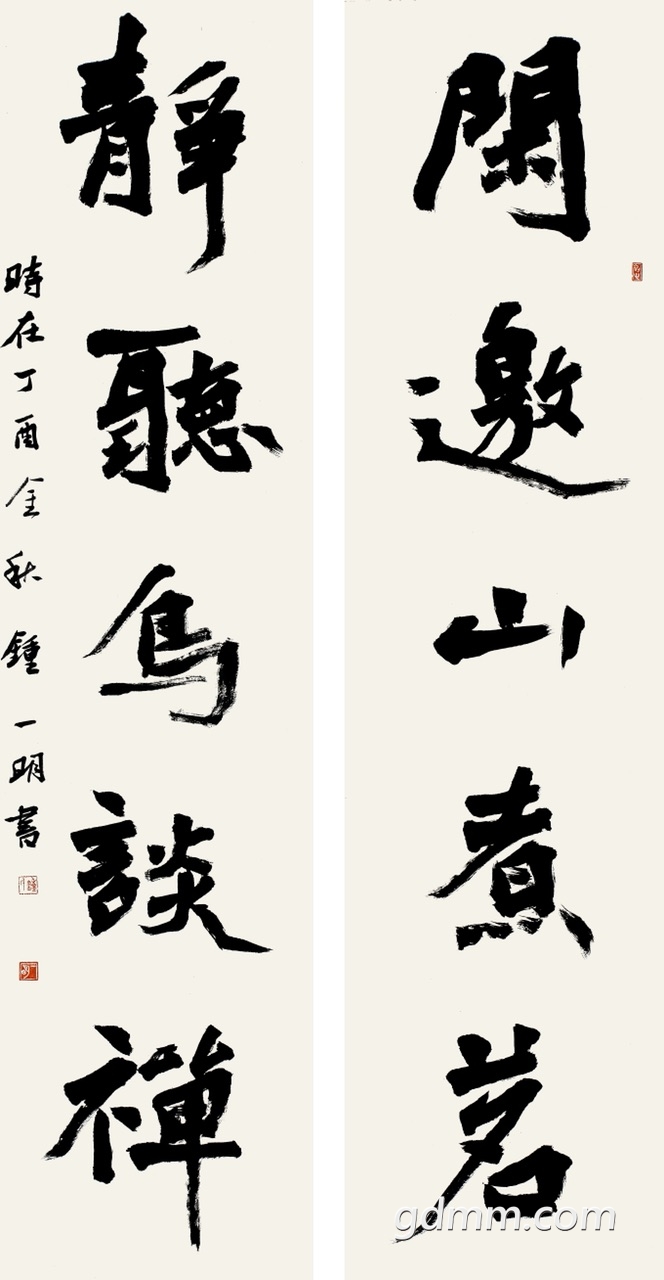 閑邀山煮茗
靜聽鳥談禪
時在丁酉金秋鍾一明書
gdmm.com